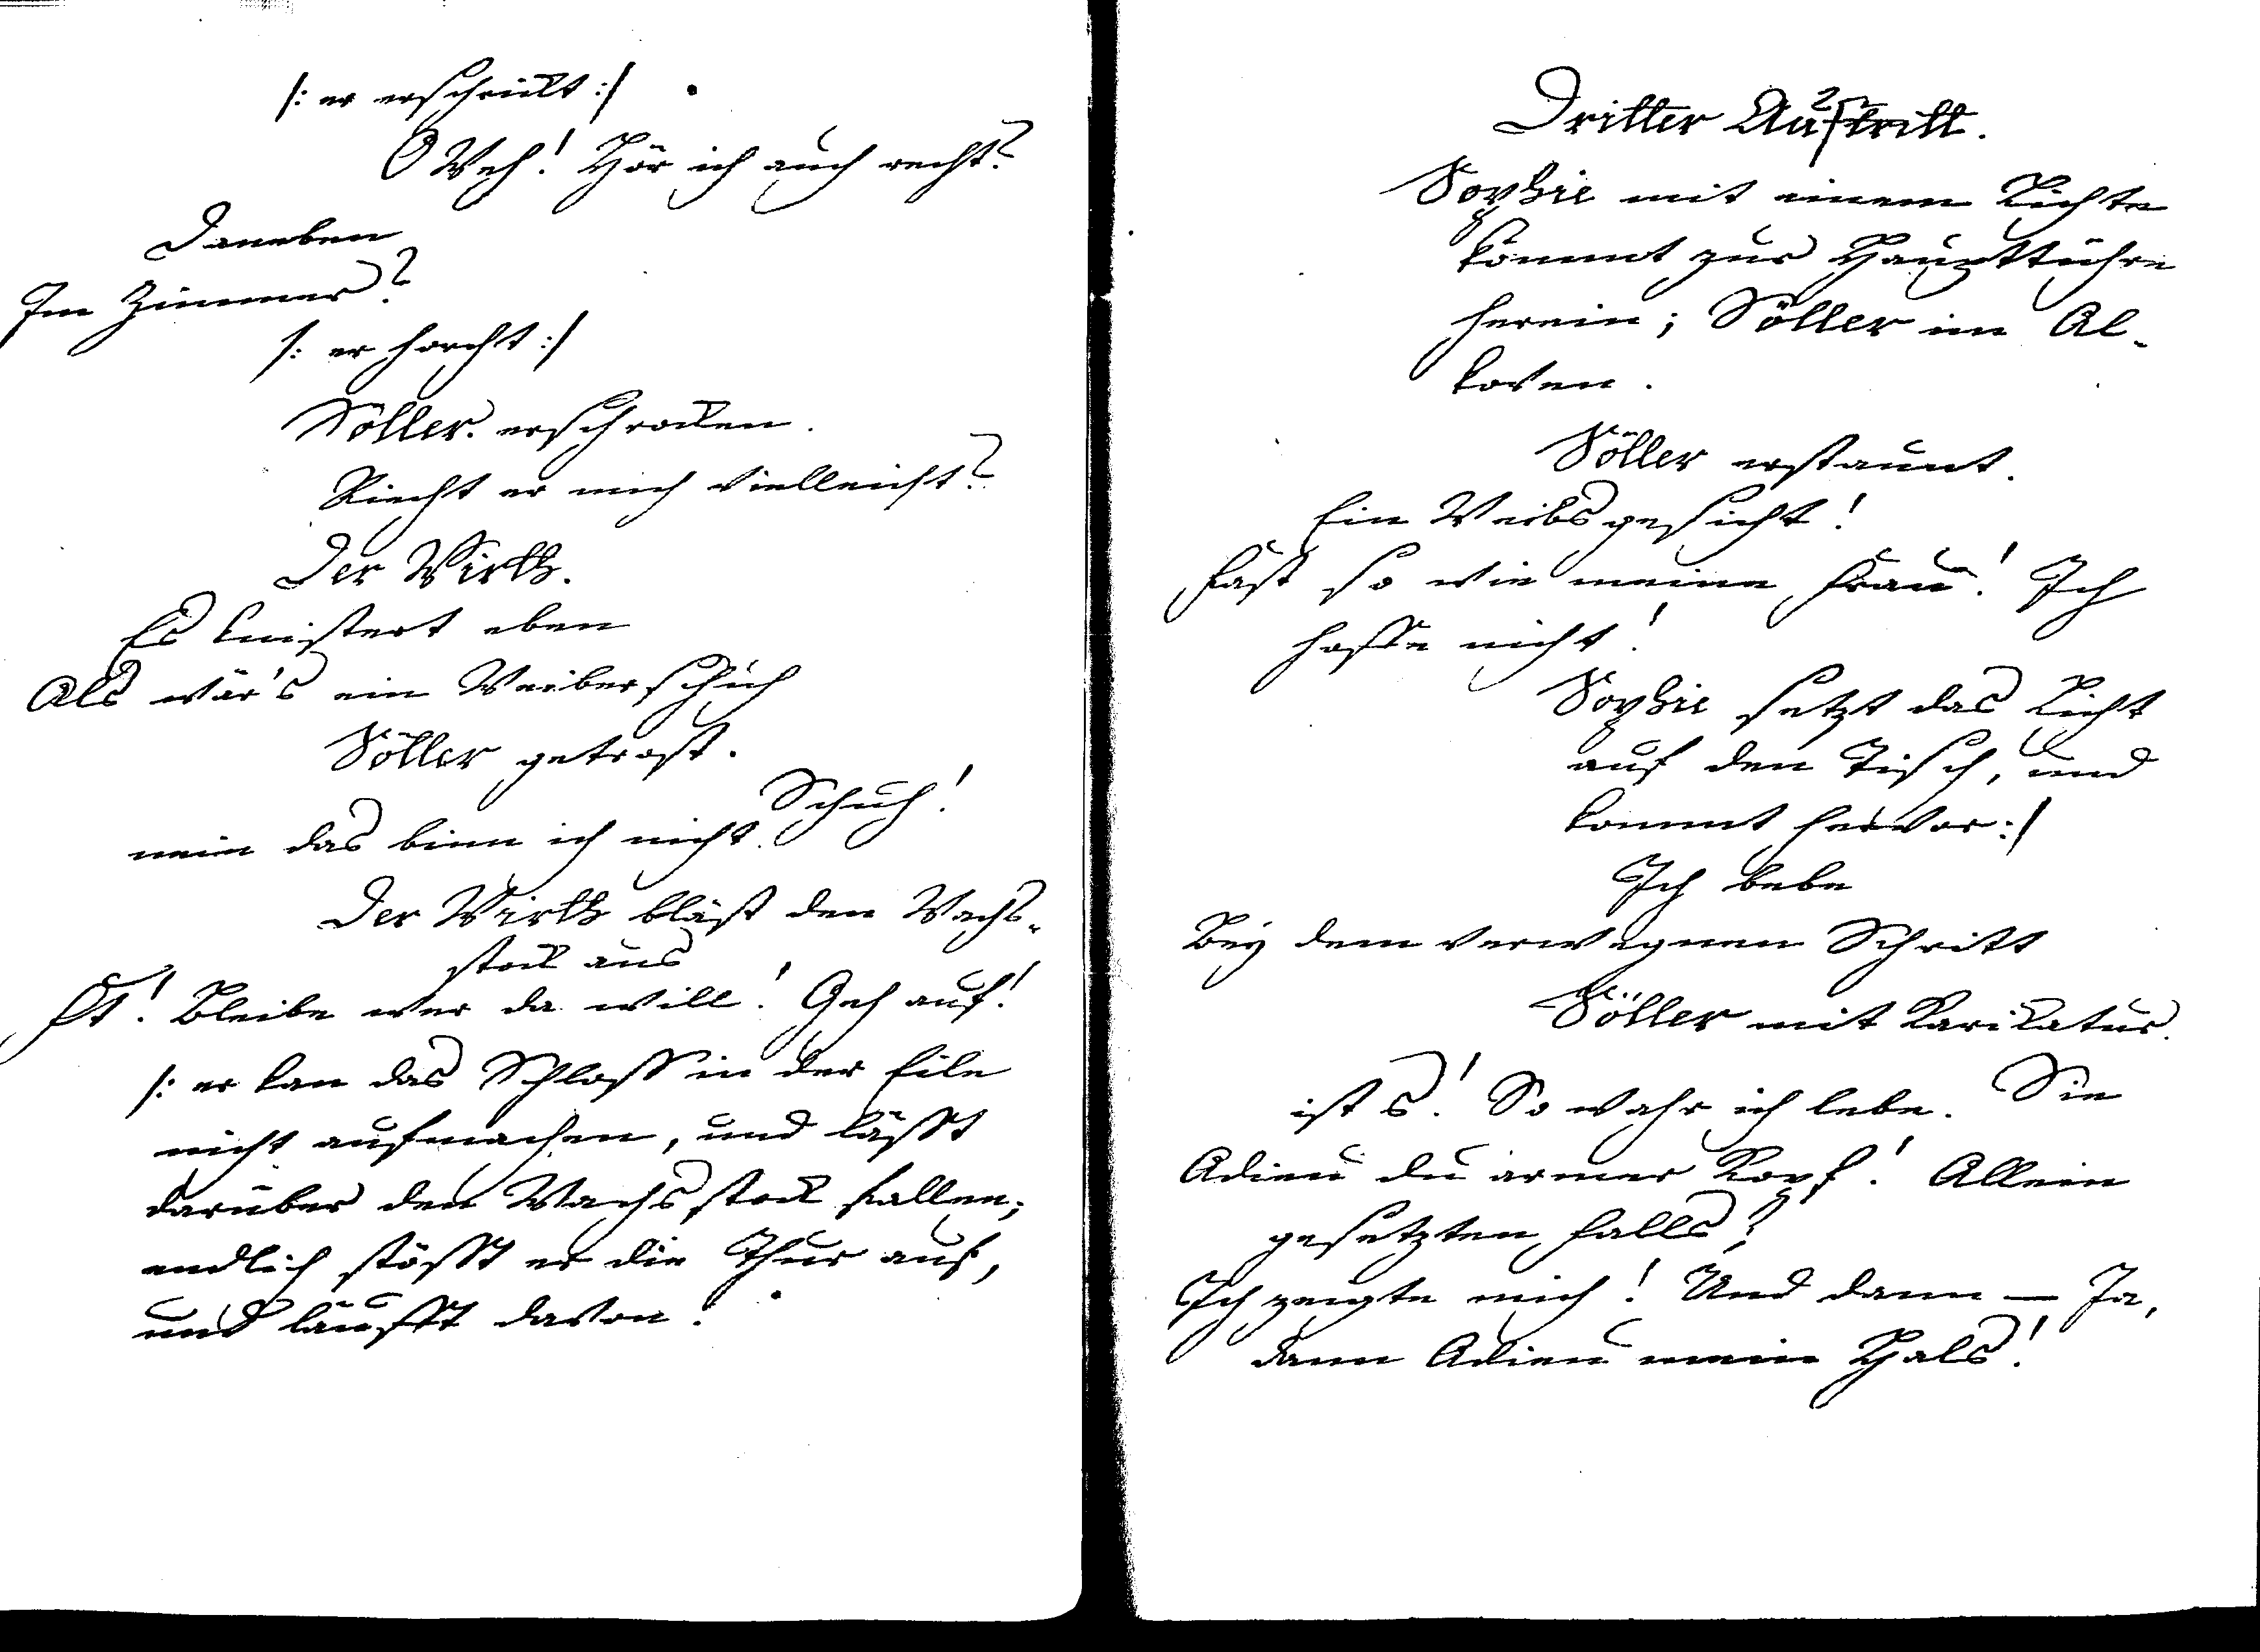 /: er erschrickt :/
O Weh! Hör ich auch recht?
Daneben
Im Zimmer?
/: er horcht :/
Söller. erschrocken.
Riecht er mich vielleicht?
Der Wirth.
Es knistert eben
Als wär's ein Weiberschuh
Söller getrost.
Schuh!
nein das binn ich nicht.
Der Wirth bläst den Wachs-
stock aus
St! Bleibe wer da will! Geh auf!
/: er kan das Schloss in der Eile
nicht aufmachen, und lässt
darüber den Wachsstock fallen;
endlich stösst er die Thur auf,
und läufft davon.
Dritter Auftritt.
Sophie mit einem Lichte
kommt zur Haupttühre
herein; Söller im Al-
koven.
Söller erstaunt.
Ein Weibsgesicht!
Fast so wie meine Frau! Ich
hoffe nicht!
Sophie setzt das Licht
auf den Tisch, und
kommt hervor :/
Ich bebe
Bey dem verwegnen Schritt
Söller mit Karikatur.
Sie
ist s! So wahr ich lebe.
Adieu du armer Kopf! Allein
gesetzten Falls?
Ich zeigte mich! Und dann — Ja,
dann Adieu mein Hals!